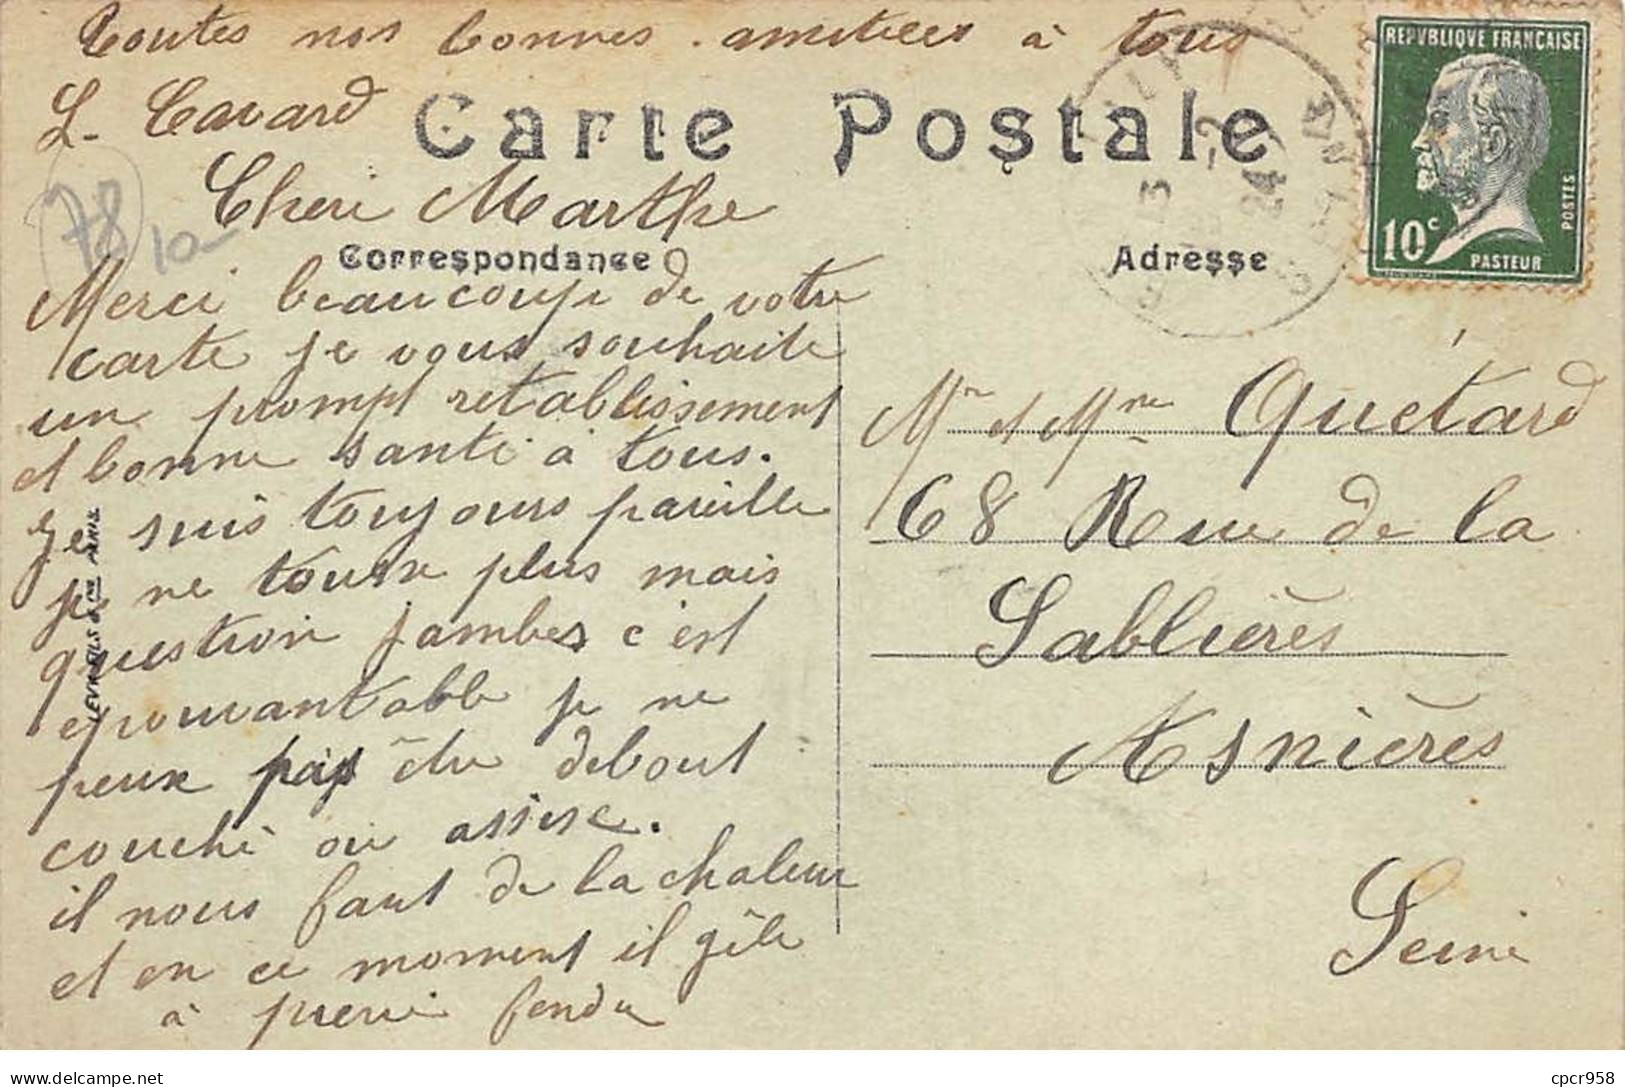 Toutes nos bonnes amitiées à tous
L. Cavard
Carte Postale
REPVBLIQVE FRANÇAISE
10c
PASTEUR
POSTES
78
10-
Cheri Marthe
Correspondance
Merci beaucoup de votre
carte je vous souhaite
un prompt retablissement
et bonne santé à tous.
Je suis toujours pareille
je ne tousse plus mais
question jambes c'est
epouvantable je ne
peux pas être debout
couché ou assise.
il nous faut de la chaleur
et en ce moment il gèle
à pierre fendu
Adresse
Mr et Mme Quétard
68 Rue de la
Sablières
Asnières
Seine
13 -2
24
delcampe.net
cpcr958